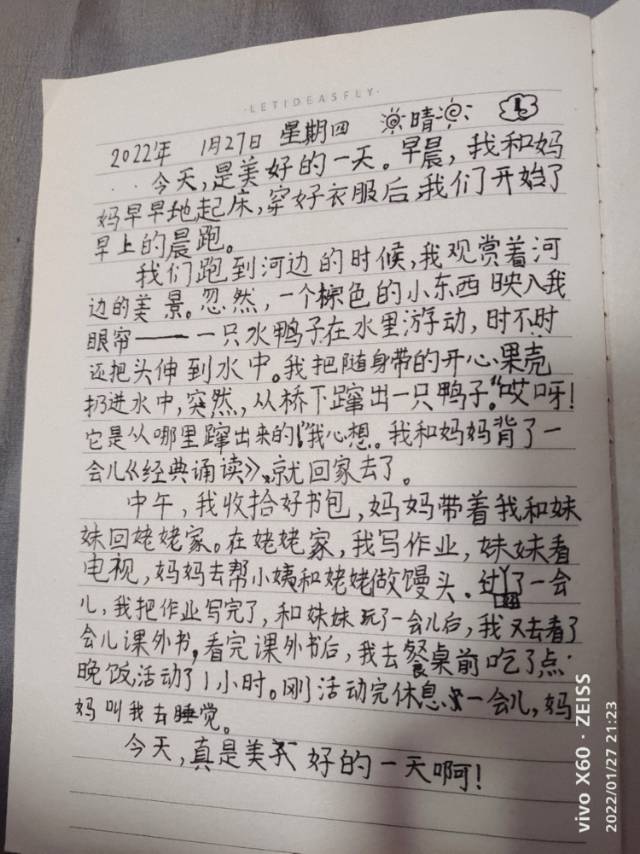 ·LETIDEASFLY·
2022年 1月27日 星期四 晴
今天,是美好的一天。早晨,我和妈
妈早早地起床,穿好衣服后,我们开始了
早上的晨跑。
我们跑到河边的时候,我观赏着河
边的美景。忽然,一个棕色的小东西映入我
眼帘——一只水鸭子在水里游动,时不时
还把头伸到水中。我把随身带的开心果壳
扔进水中,突然,从桥下蹿出一只鸭子。“哎呀!
它是从哪里蹿出来的!”我心想。我和妈妈背了一
会儿《经典诵读》,就回家去了。
中午,我收拾好书包,妈妈带着我和妹
妹回姥姥家。在姥姥家,我写作业,妹妹看
电视,妈妈去帮小姨和姥姥做馒头。过了一会
儿,我把作业写完了,和妹妹玩了一会儿后,我又去看了
会儿课外书,看完课外书后,我去餐桌前吃了点
晚饭,活动了1小时。刚活动完休息一会儿,妈
妈叫我去睡觉。
今天,真是美好的一天啊!
vivo X60 · ZEISS
2022/01/27 21:23